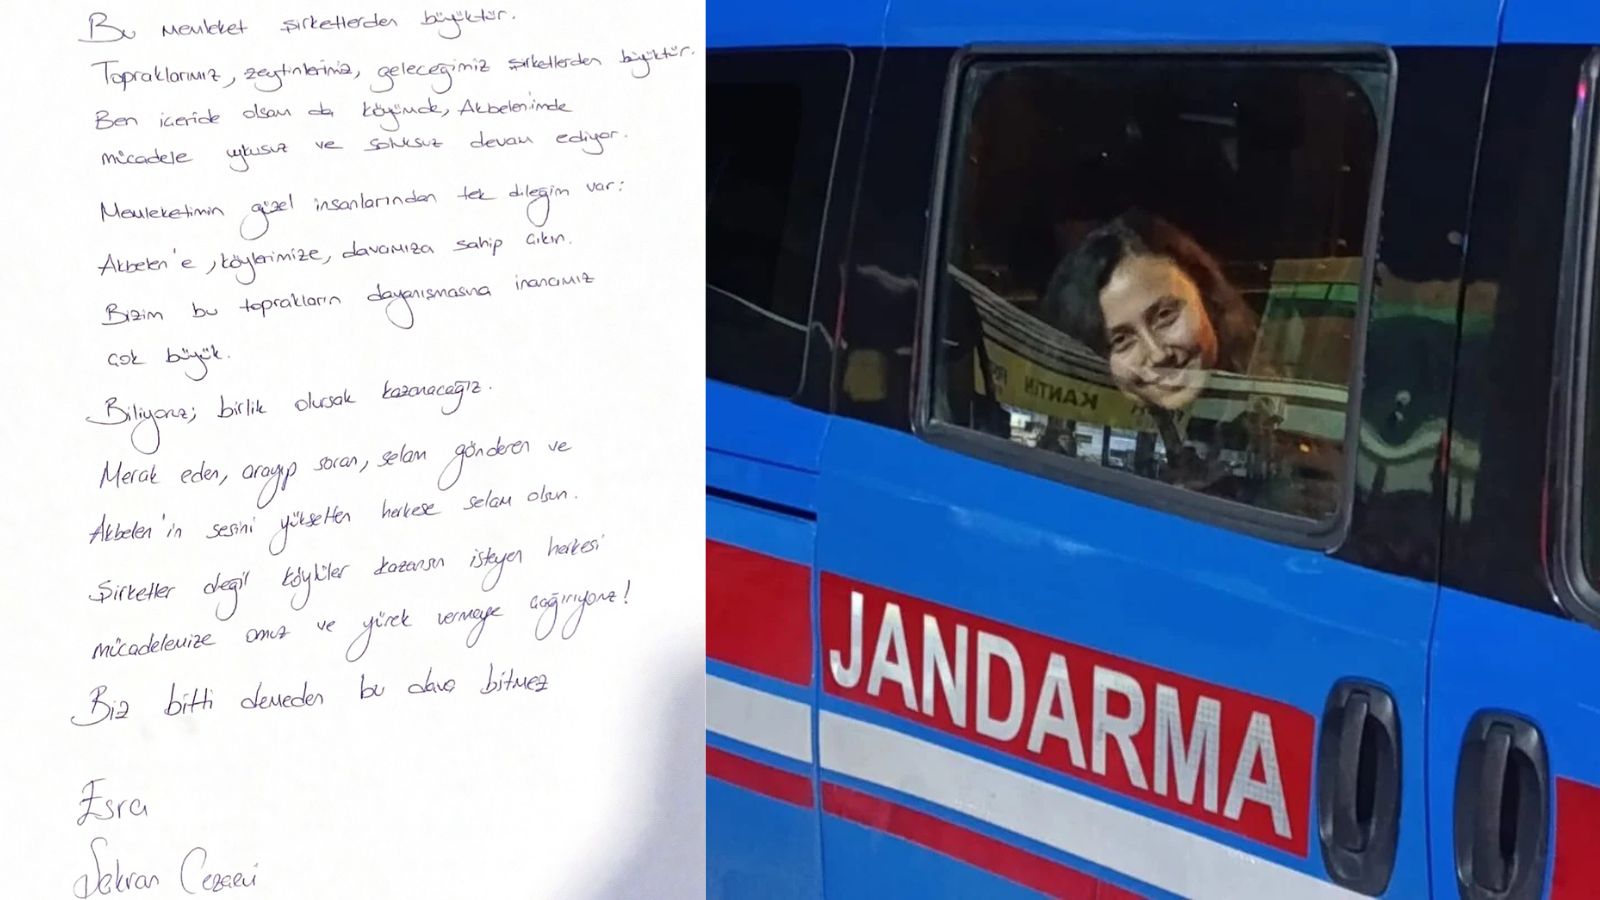 Bu memleket şirketlerden büyüktür.
Topraklarımız, zeytinlerimiz, geleceğimiz şirketlerden büyüktür.
Ben içeride olsam da köyümde, Akbelen'imde
mücadele uykusuz ve soluksuz devam ediyor.
Memleketimin güzel insanlarından tek dileğim var:
Akbelen'e, köylerimize, davamıza sahip çıkın.
Bizim bu toprakların dayanışmasına inancımız
çok büyük.
Biliyoruz; birlik olursak kazanacağız.
Merak eden, arayıp soran, selam gönderen ve
Akbelen'in sesini yükselten herkese selam olsun.
Şirketler değil köylüler kazansın isteyen herkesi
mücadelemize omuz ve yürek vermeye çağırıyoruz!
Biz bitti demeden bu dava bitmez
Esra
Şakran Cezaevi
KANTİN
JANDARMA